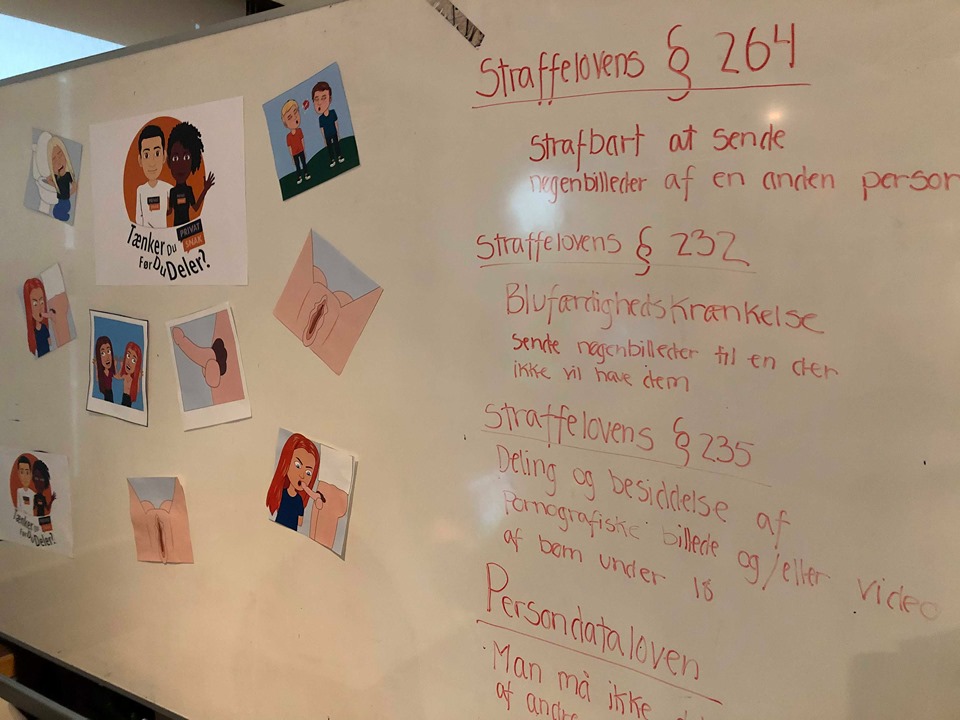 Tænker Du
Før Du Deler?
PRIVAT
SNAK
Tænker Du
Før Du Deler?
Straffelovens § 264
Strafbart at sende
nøgenbilleder af en anden person
Straffelovens § 232
Blufærdighedskrænkelse
sende nøgenbilleder til en der
ikke vil have dem
Straffelovens § 235
Deling og besiddelse af
Pornografiske billede og/eller video
af børn under 18
Persondataloven
Man må ikke
af andre